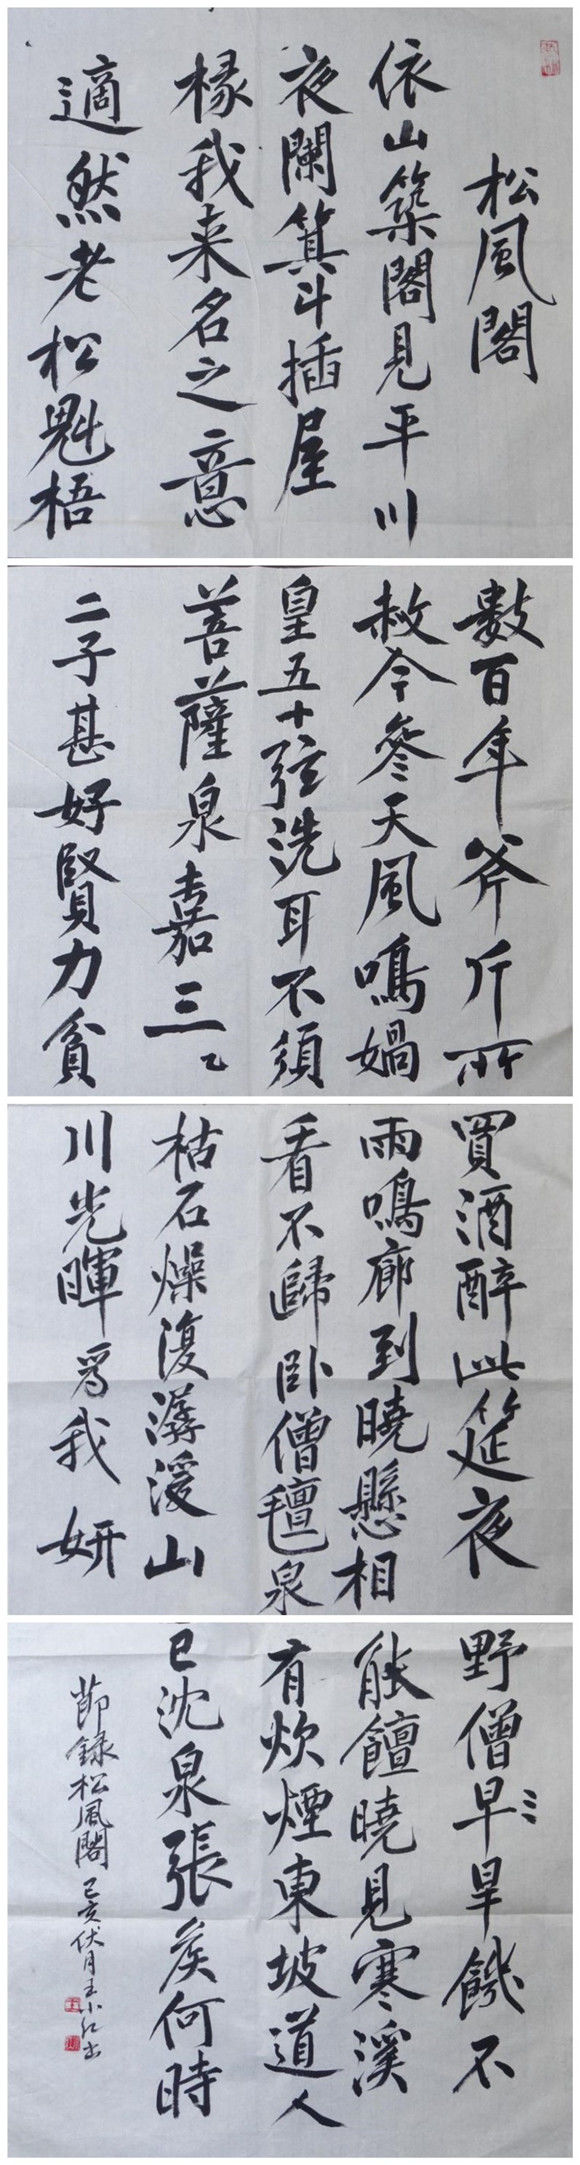 松風閣
依山築閣見平川
夜闌箕斗插屋
椽我来名之意
適然老松魁梧
數百年斧斤所
赦今參天風鳴媧
皇五十弦洗耳不須
菩薩泉嘉三
二子甚好賢力貧
買酒醉此筵夜
雨鳴廊到曉懸相
看不歸卧僧氈泉
枯石燥復潺湲山
川光暉爲我妍
野僧早旱饑不
能饘曉見寒溪
有炊煙東坡道人
已沈泉張矦何時
節錄松風閣 己亥伏月王小红书